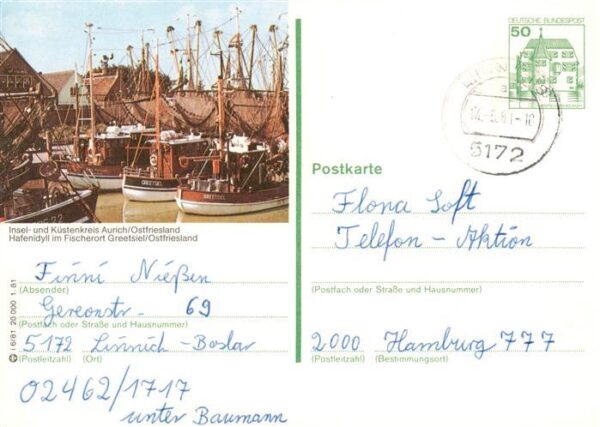 GREETSIEL
GREETSIEL
Insel- und Küstenkreis Aurich/Ostfriesland
Hafenidyll im Fischerort Greetsiel/Ostfriesland
Finni Nießen
(Absender)
Gereonstr. 69
(Postfach oder Straße und Hausnummer)
5172 Linnich-Boslar
(Postleitzahl) (Ort)
02462/1717
unter Baumann
i 6/81 20 000 1.81
DEUTSCHE BUNDESPOST
50
LINNICH
a
5172
Postkarte
Flona Soft
Telefon-Aktion
(Postfach oder Straße und Hausnummer)
2000 Hamburg 777
(Postleitzahl) (Bestimmungsort)